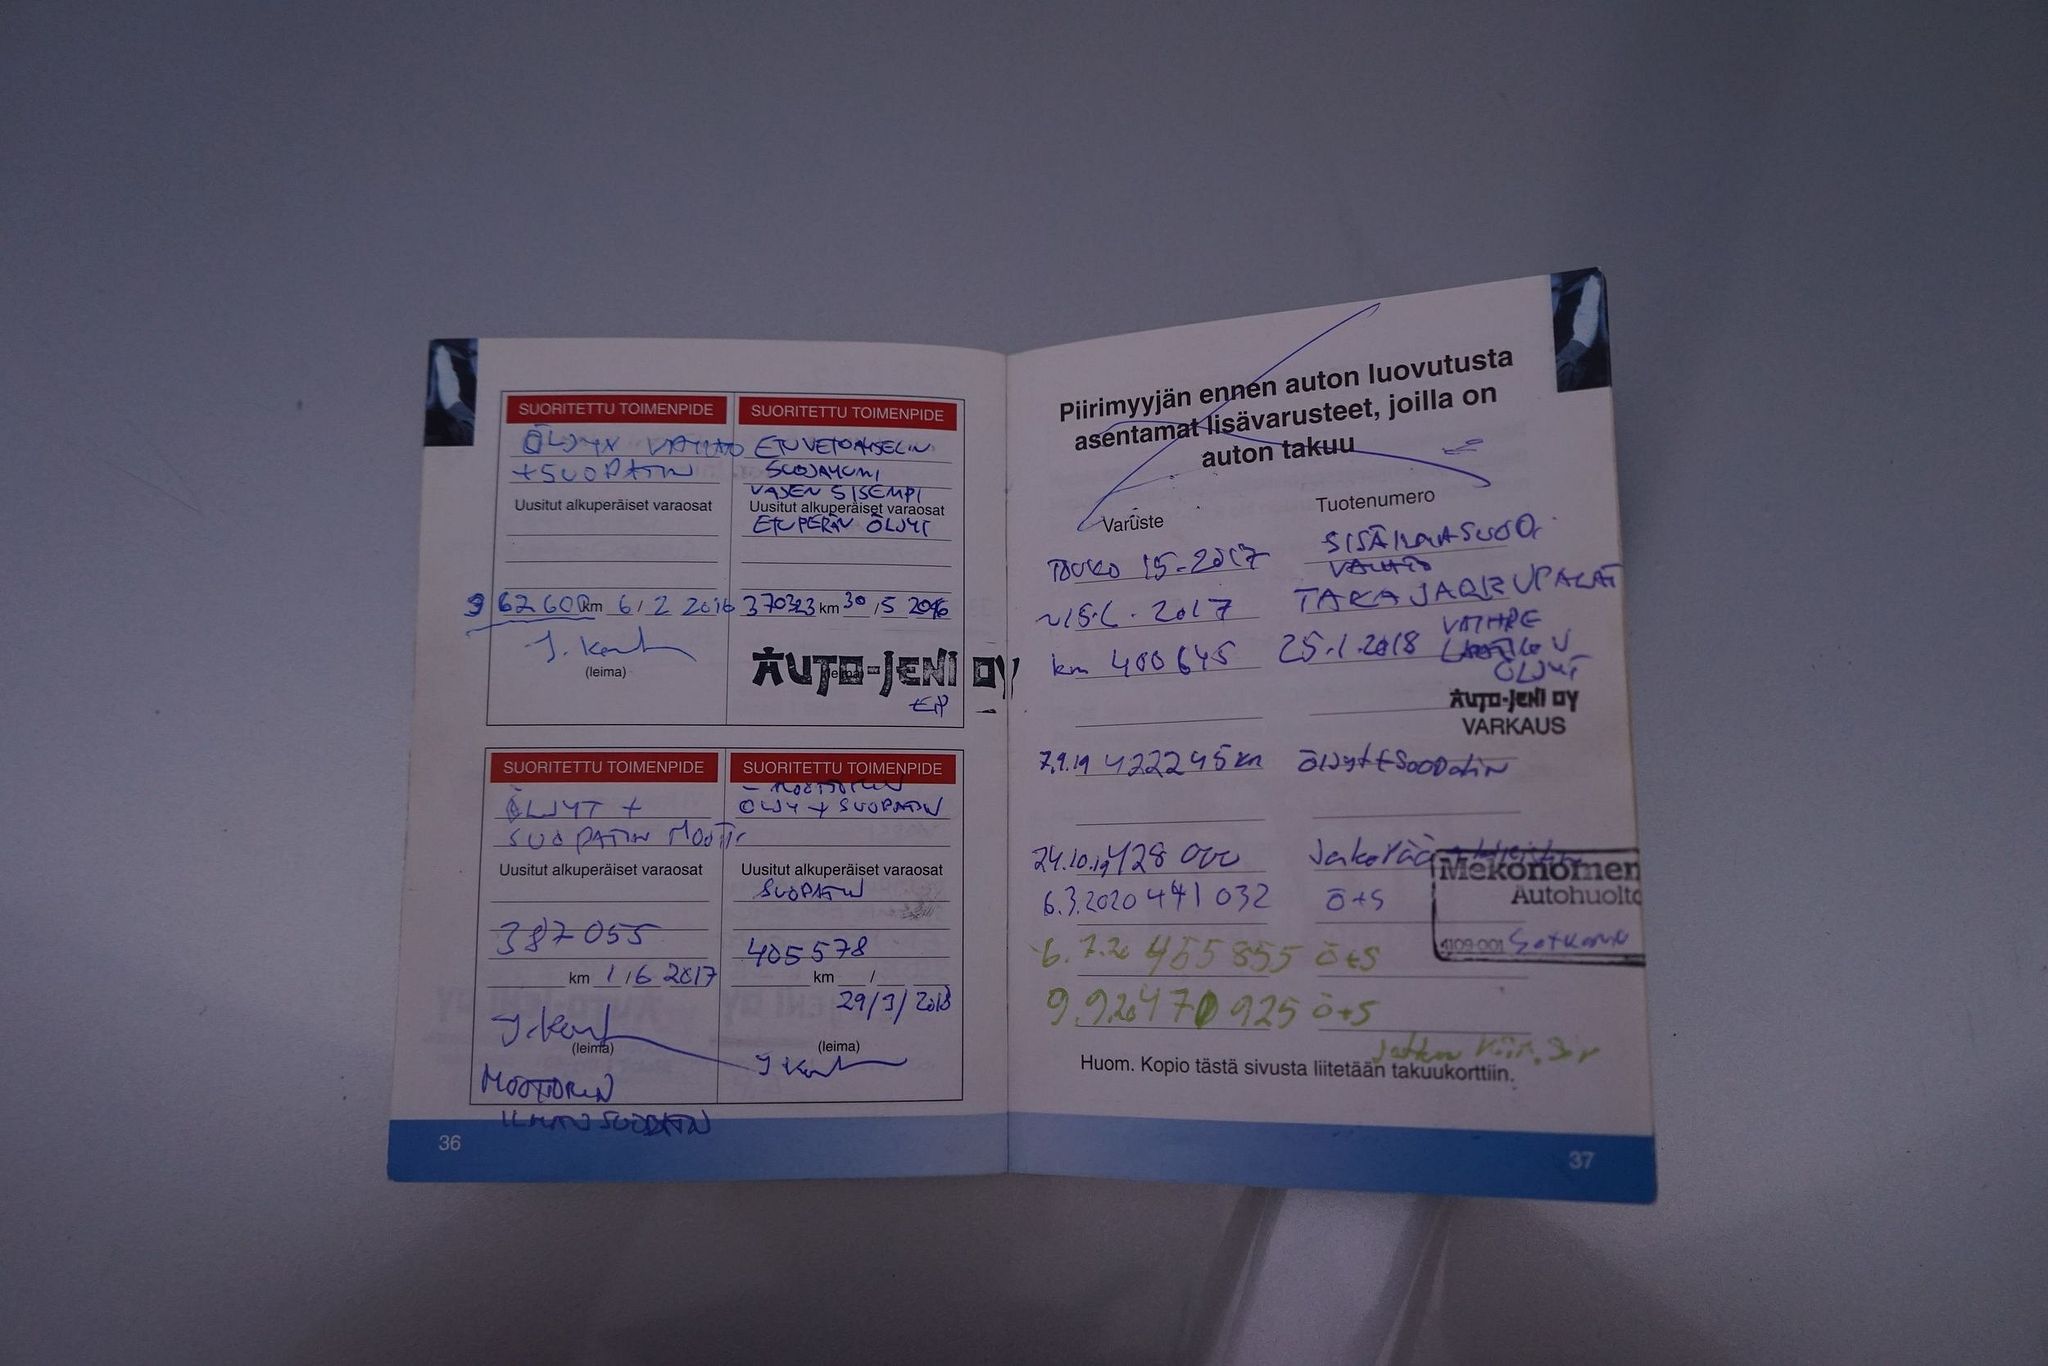 SUORITETTU TOIMENPIDE
ÖLJYN VAIHTO
+SUODATIN
Uusitut alkuperäiset varaosat
362600 km 6/2 2016
(leima)
SUORITETTU TOIMENPIDE
ETUVETOAKSELIN
SUOJAKUMI
VASEN SISEMPI
Uusitut alkuperäiset varaosat
ETUPERÄN ÖLJYT
370323 km 30/5 2016
AUTO-JENI OY
(leima)
SUORITETTU TOIMENPIDE
ÖLJYT +
SUODATIN MOOTT.
Uusitut alkuperäiset varaosat
387055
km 1/6 2017
(leima)
MOOTTORIN
ILMANSUODATIN
SUORITETTU TOIMENPIDE
- MOOTTORIN
ÖLJY + SUODATIN
Uusitut alkuperäiset varaosat
SUODATIN
405578
km /
29/3/2018
(leima)
36
Piirimyyjän ennen auton luovutusta
asentamat lisävarusteet, joilla on
auton takuu
Varuste Tuotenumero
TOUKO 15-2017 SISÄILMASUOD.
VAIHTO
15.6.2017 TAKAJARRUPALAT
km 400645 25.1.2018 VAIHDE
ÖLJYT
AUTO-JENI OY
VARKAUS
7.9.19 422245 km öljyt+Soodatin
24.10.19 428 000 Jakopää
Mekonomen
Autohuolto
6.3.2020 441 032 Ö+S
4109-001 Sotkamo
6.7.20 455 855 Ö+S
9.9.20 470 925 Ö+S
Jatkuu
Huom. Kopio tästä sivusta liitetään takuukorttiin.
37